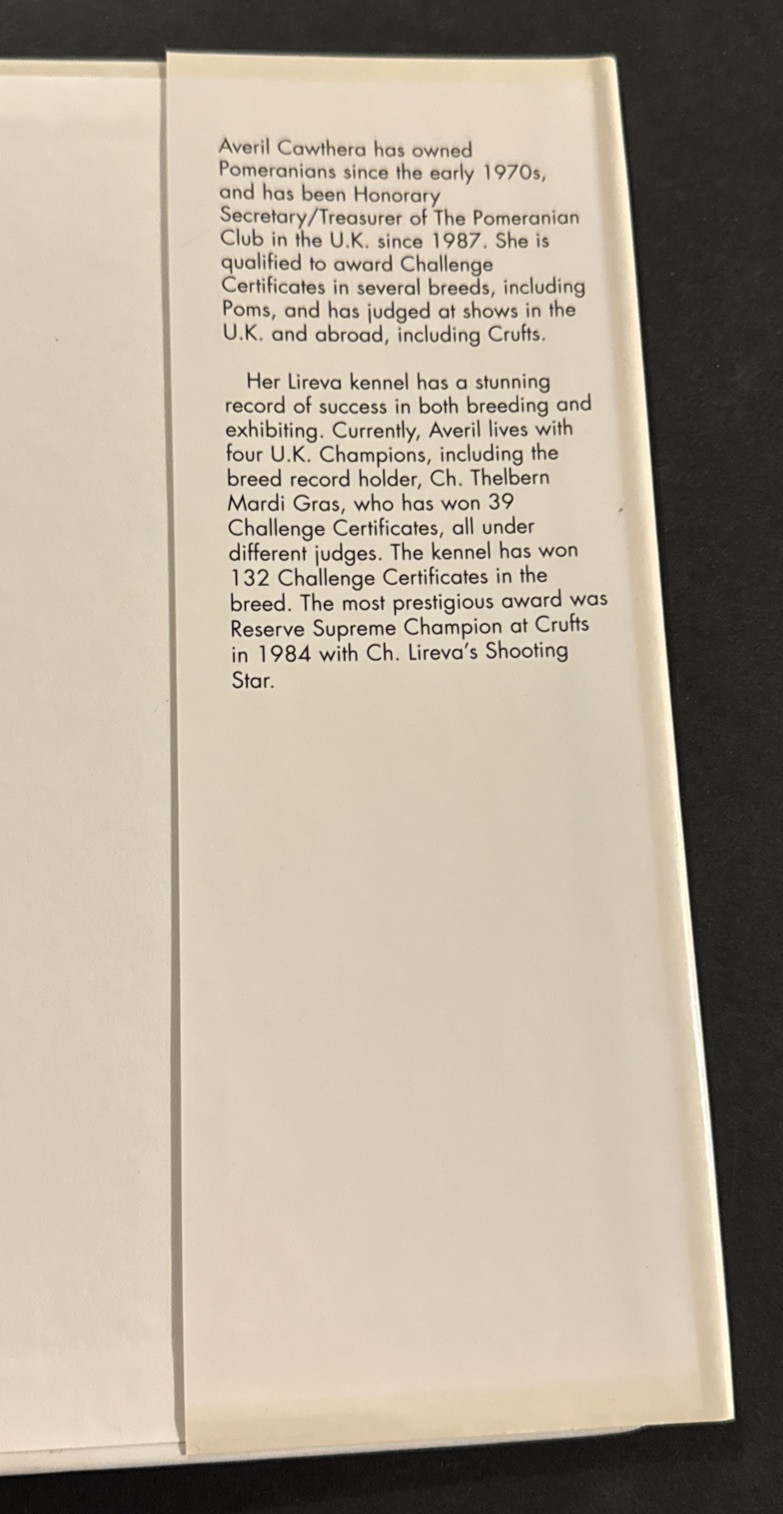 Averil Cawthera has owned
Pomeranians since the early 1970s,
and has been Honorary
Secretary/Treasurer of The Pomeranian
Club in the U.K. since 1987. She is
qualified to award Challenge
Certificates in several breeds, including
Poms, and has judged at shows in the
U.K. and abroad, including Crufts.
Her Lireva kennel has a stunning
record of success in both breeding and
exhibiting. Currently, Averil lives with
four U.K. Champions, including the
breed record holder, Ch. Thelbern
Mardi Gras, who has won 39
Challenge Certificates, all under
different judges. The kennel has won
132 Challenge Certificates in the
breed. The most prestigious award was
Reserve Supreme Champion at Crufts
in 1984 with Ch. Lireva's Shooting
Star.